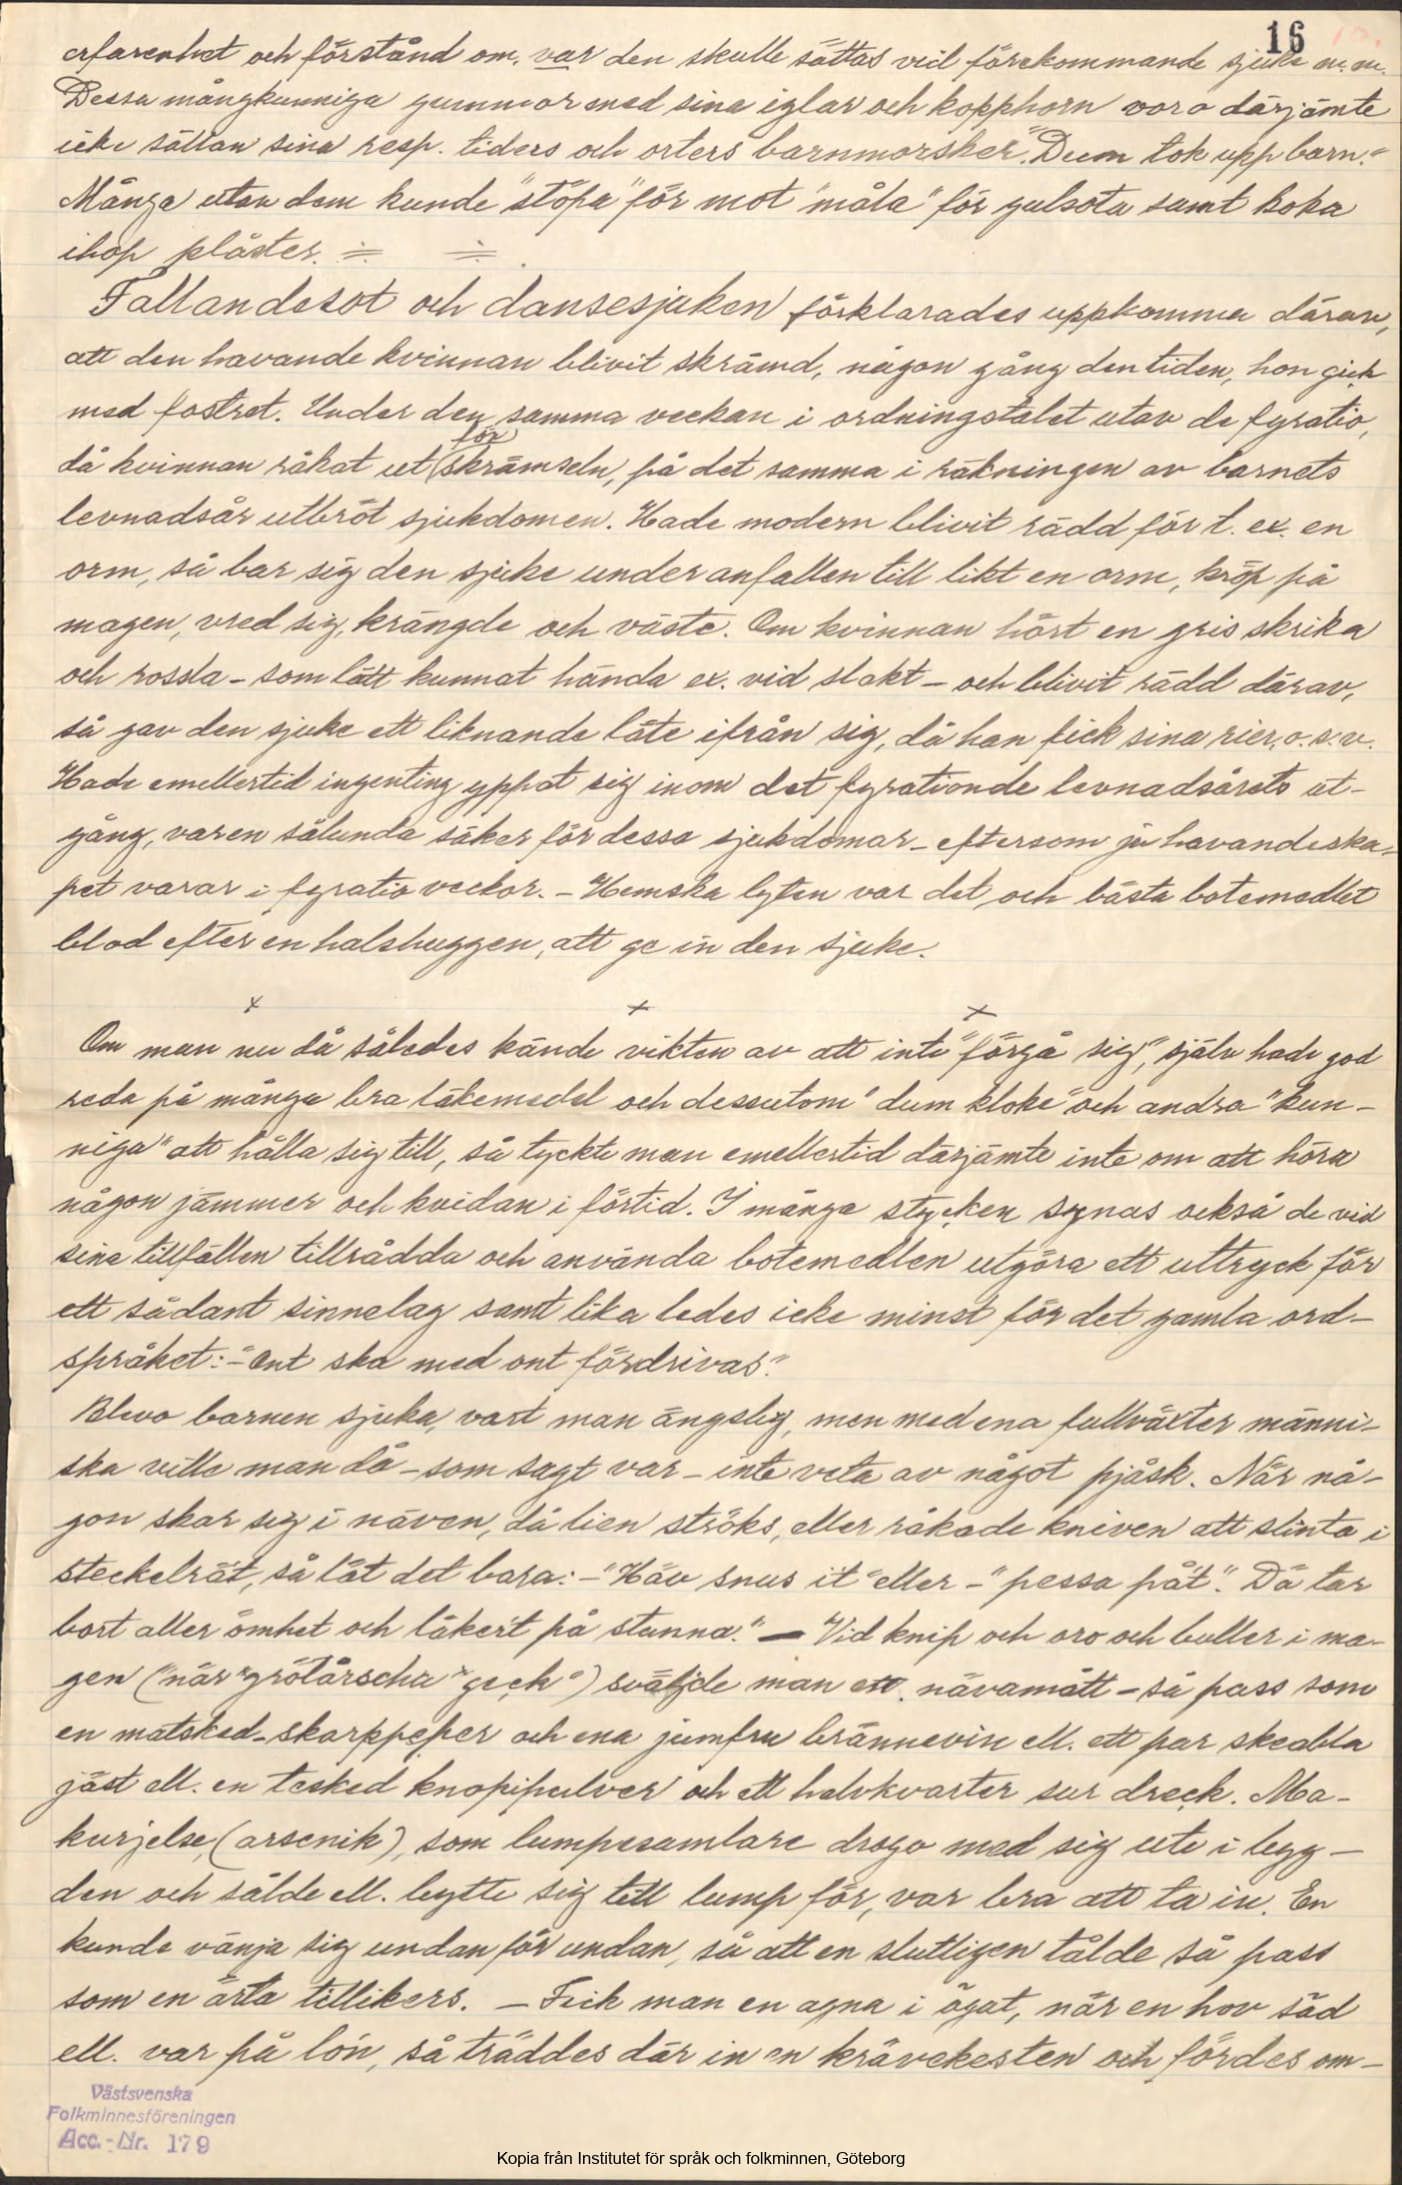 16
erfarenhet och förstånd om, var den skulle sättas vid förekommande sjuka m.m.
Dessa mångkunniga gummor med sina iglar och kopphorn voro därjämte
icke sällan sina resp. tiders och orters barnmorsker. "Dum tok upp barn."
Många utav dem kunde "stöpa" för mot "måla" för gulsota samt koka
ihop pläster. ÷ ÷
Fallandesot och dansesjuken förklarades uppkomma därav,
att den havande kvinnan blivit skrämd, någon gång den tiden, hon gick
med fostret. Under den samma veckan i ordningstalet utav de fyratio,
då kvinnan råkat ut för skrämseln, på det samma i räkningen av barnets
levnadsår utbröt sjukdomen. Hade modern blivit rädd för t. ex. en
orm, så bar sig den sjuke under anfallen till likt en orm, kröp på
magen, vred sig, krängde och väste. Om kvinnan hört en gris skrika
och rossla – som lätt kunnat hända ex. vid slakt – och blivit rädd därav,
så gav den sjuke ett liknande läte ifrån sig, då han fick sina rier, o.s.v.
Hade emellertid ingenting yppat sig inom det fyrationde levnadsårets ut-
gång, var en sålunda säker för dessa sjukdomar – eftersom ju havandeska-
pet varar i fyratio veckor. – Hemska lyten var det, och bästa botemedlet
blod efter en halshuggen, att ge in den sjuke.
x x x
Om man nu då således kände vikten av att inte "förgå sig", själv hade god
reda på många bra läkemedel och dessutom "dum kloke" och andra "kun-
niga" att hålla sig till, så tyckte man emellertid därjämte inte om att höra
någon jämmer och kvidan i förtid. I många stycken synas också de vid
sina tillfällen tillrådda och använda botemedlen utgöra ett uttryck för
ett sådant sinnelag samt lika ledes icke minst för det gamla ord-
språket: – "Ont ska med ont fördrivas."
Blevo barnen sjuka, vart man ängslig, men med ena fullväxter männi-
ska ville man då – som sagt var – inte veta av något pjåsk. När nå-
gon skar sig i näven, då lien ströks, eller råkade kniven att slinta i
steckelrät, så lät det bara: – "Häv snus it" eller – "pessa påt". Dä tar
bort aller ömhet och läker't på stunna." – Vid knip och oro och buller i ma-
gen ("när "grötårscha" geck") sväljde man ett nävamått – så pass som
en matsked – skarppeper och ena jumfru brännevin ell. ett par skeabla
jäst ell. en tesked knopipulver och ett halvkvarter sur dreck. Ma-
kurjelse, (arsenik), som lumpesamlare drogo med sig ute i byg-
den och sålde ell. bytte sig till lump för, var bra att ta in. En
kunde vänja sig undan för undan, så att en slutligen tålde så pass
som en ärta tillikers. – Fick man en agna i ögat, när en hov säd
ell. var på lön, så träddes där in en krävekesten och fördes om-
Västsvenska
Folkminnesföreningen
Acc.-Nr. 179
Kopia från Institutet för språk och folkminnen, Göteborg